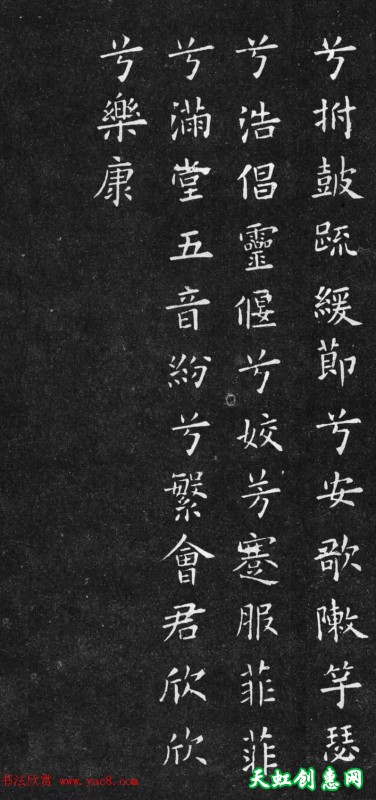 兮拊鼓䟽緩節兮安歌敶竽瑟
兮浩倡靈偃兮姣芳蹇服菲菲
兮滿堂五音紛兮繁會君欣欣
兮樂康
书法欣赏 www.yac8.com
天虹创惠网